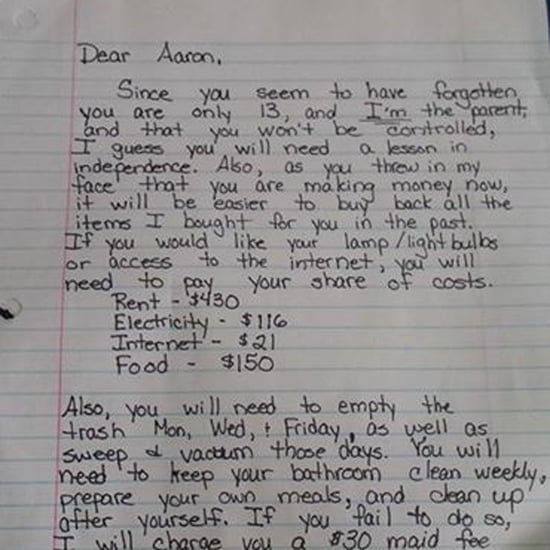 Dear Aaron,
Since you seem to have forgotten
you are only 13, and I'm the parent,
and that you won't be controlled,
I guess you will need a lesson in
independence. Also, as you threw in my
face that you are making money now,
it will be easier to buy back all the
items I bought for you in the past.
If you would like your lamp/lightbulbs
or access to the internet, you will
need to pay your share of costs.
Rent - $430
Electricity - $116
Internet - $21
Food - $150
Also, you will need to empty the
trash Mon, Wed, + Friday, as well as
sweep & vacuum those days. You will
need to keep your bathroom clean weekly,
prepare your own meals, and clean up
after yourself. If you fail to do so,
I will charge you a $30 maid fee